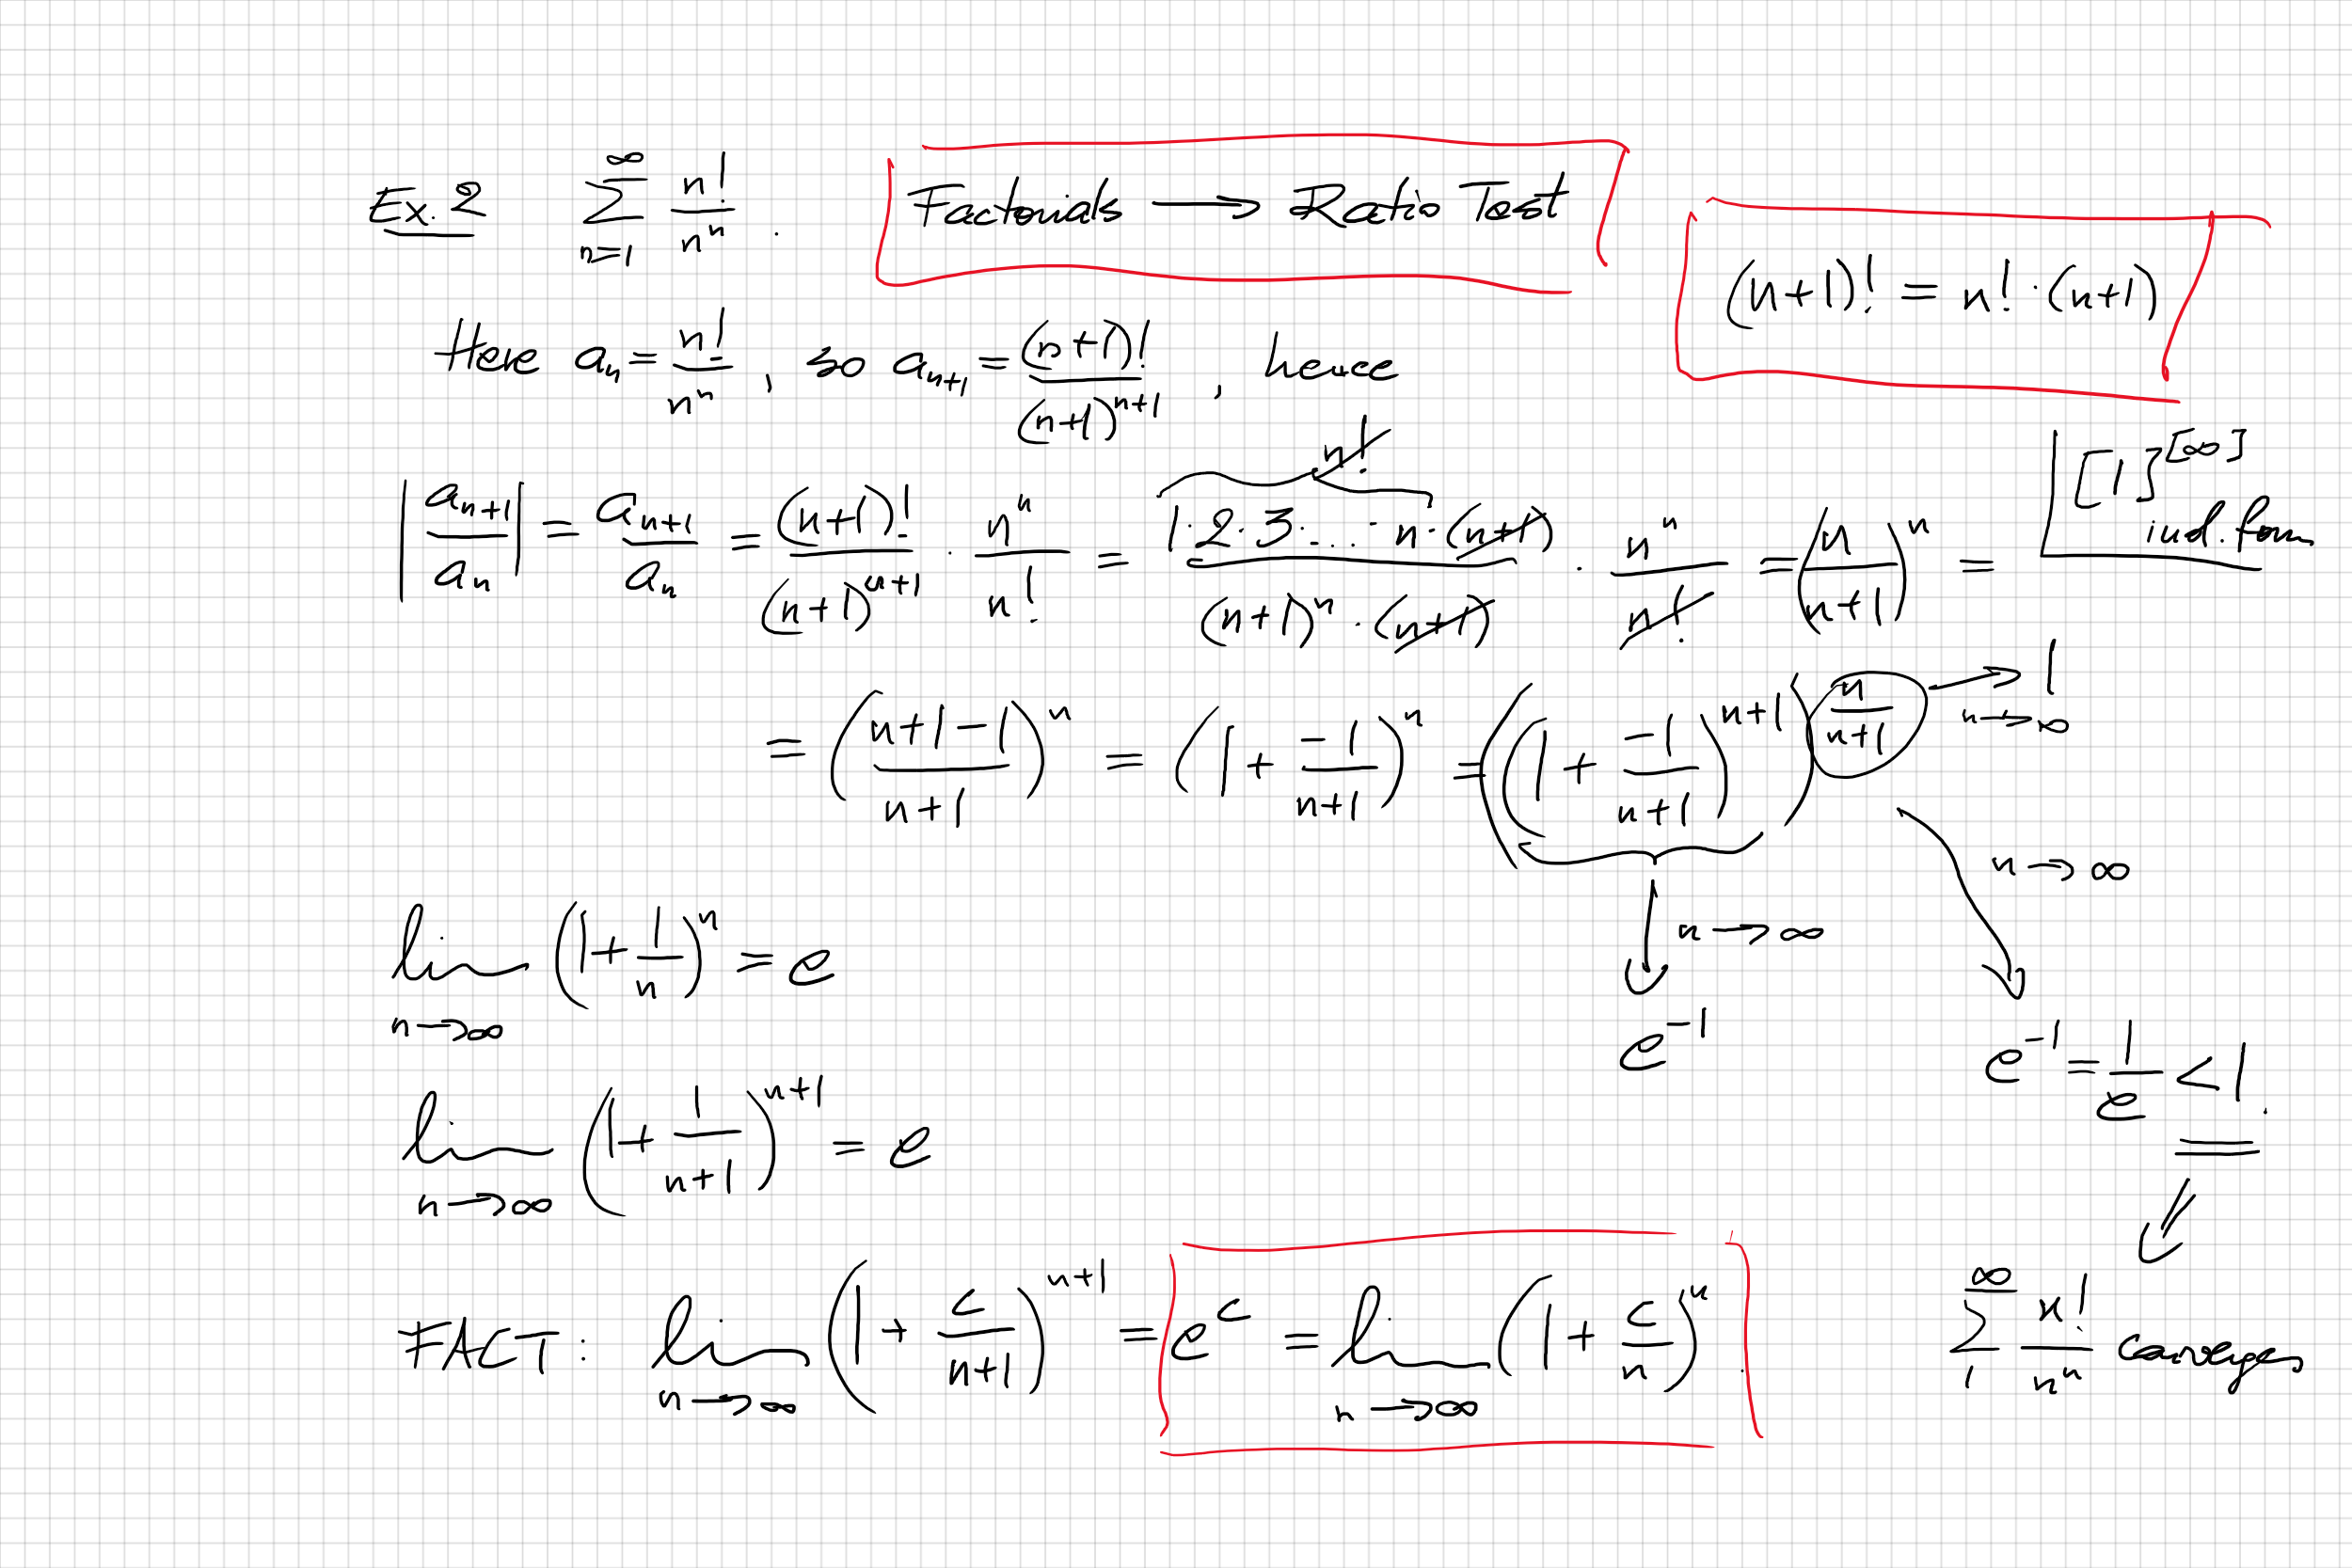 Ex. 2 \sum_{n=1}^{\infty} \frac{n!}{n^n} . Factorials ⟶ Ratio Test
(n+1)! = n! · (n+1)
Here a_n = \frac{n!}{n^n}, so a_{n+1} = \frac{(n+1)!}{(n+1)^{n+1}}, hence
\left|\frac{a_{n+1}}{a_n}\right| = \frac{a_{n+1}}{a_n} = \frac{(n+1)!}{(n+1)^{n+1}} · \frac{n^n}{n!} = \frac{\overbrace{1·2·3·...·n}^{n!}·(n+1)}{(n+1)^n·(n+1)} · \frac{n^n}{n!} = \left(\frac{n}{n+1}\right)^n = [1]^{[∞]} ind. form
= \left(\frac{n+1-1}{n+1}\right)^n = \left(1+\frac{-1}{n+1}\right)^n = \left(\left(1+\frac{-1}{n+1}\right)^{n+1}\right)^{\frac{n}{n+1}} ⟶ 1
n→∞
n→∞
\lim_{n→∞} \left(1+\frac{1}{n}\right)^n = e
n→∞
e^{-1}
e^{-1} = \frac{1}{e} < 1.
\lim_{n→∞} \left(1+\frac{1}{n+1}\right)^{n+1} = e
FACT: \lim_{n→∞} \left(1+\frac{c}{n+1}\right)^{n+1} = e^c = \lim_{n→∞} \left(1+\frac{c}{n}\right)^n.
\sum_{1}^{∞} \frac{n!}{n^n} converges